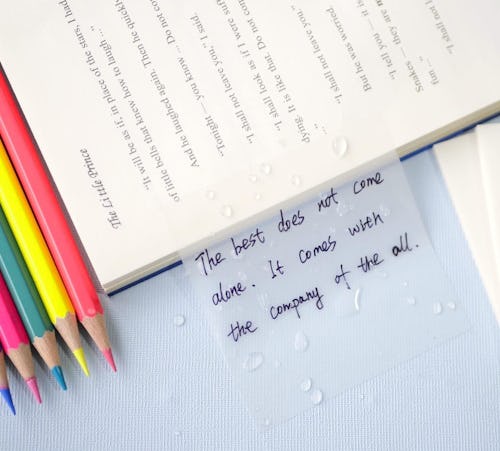 The Little Prince
"It will be as if, in place of the stars, I had
of little bells that knew how to laugh ..."
And he laughed again. Then he quickly
"Tonight — you know ... Do not
"I shall not leave you," I said.
"I shall look as if I were
dying. It is like that. Do not
..."
"I shall not leave you."
But he was worried.
"I tell you — it is
Snakes — they are
fun ..."
"I shall not
The best does not come
alone. It comes with
the company of the all.